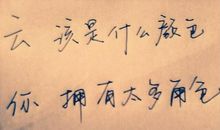 云 该是什么颜色
你 拥有太多角色